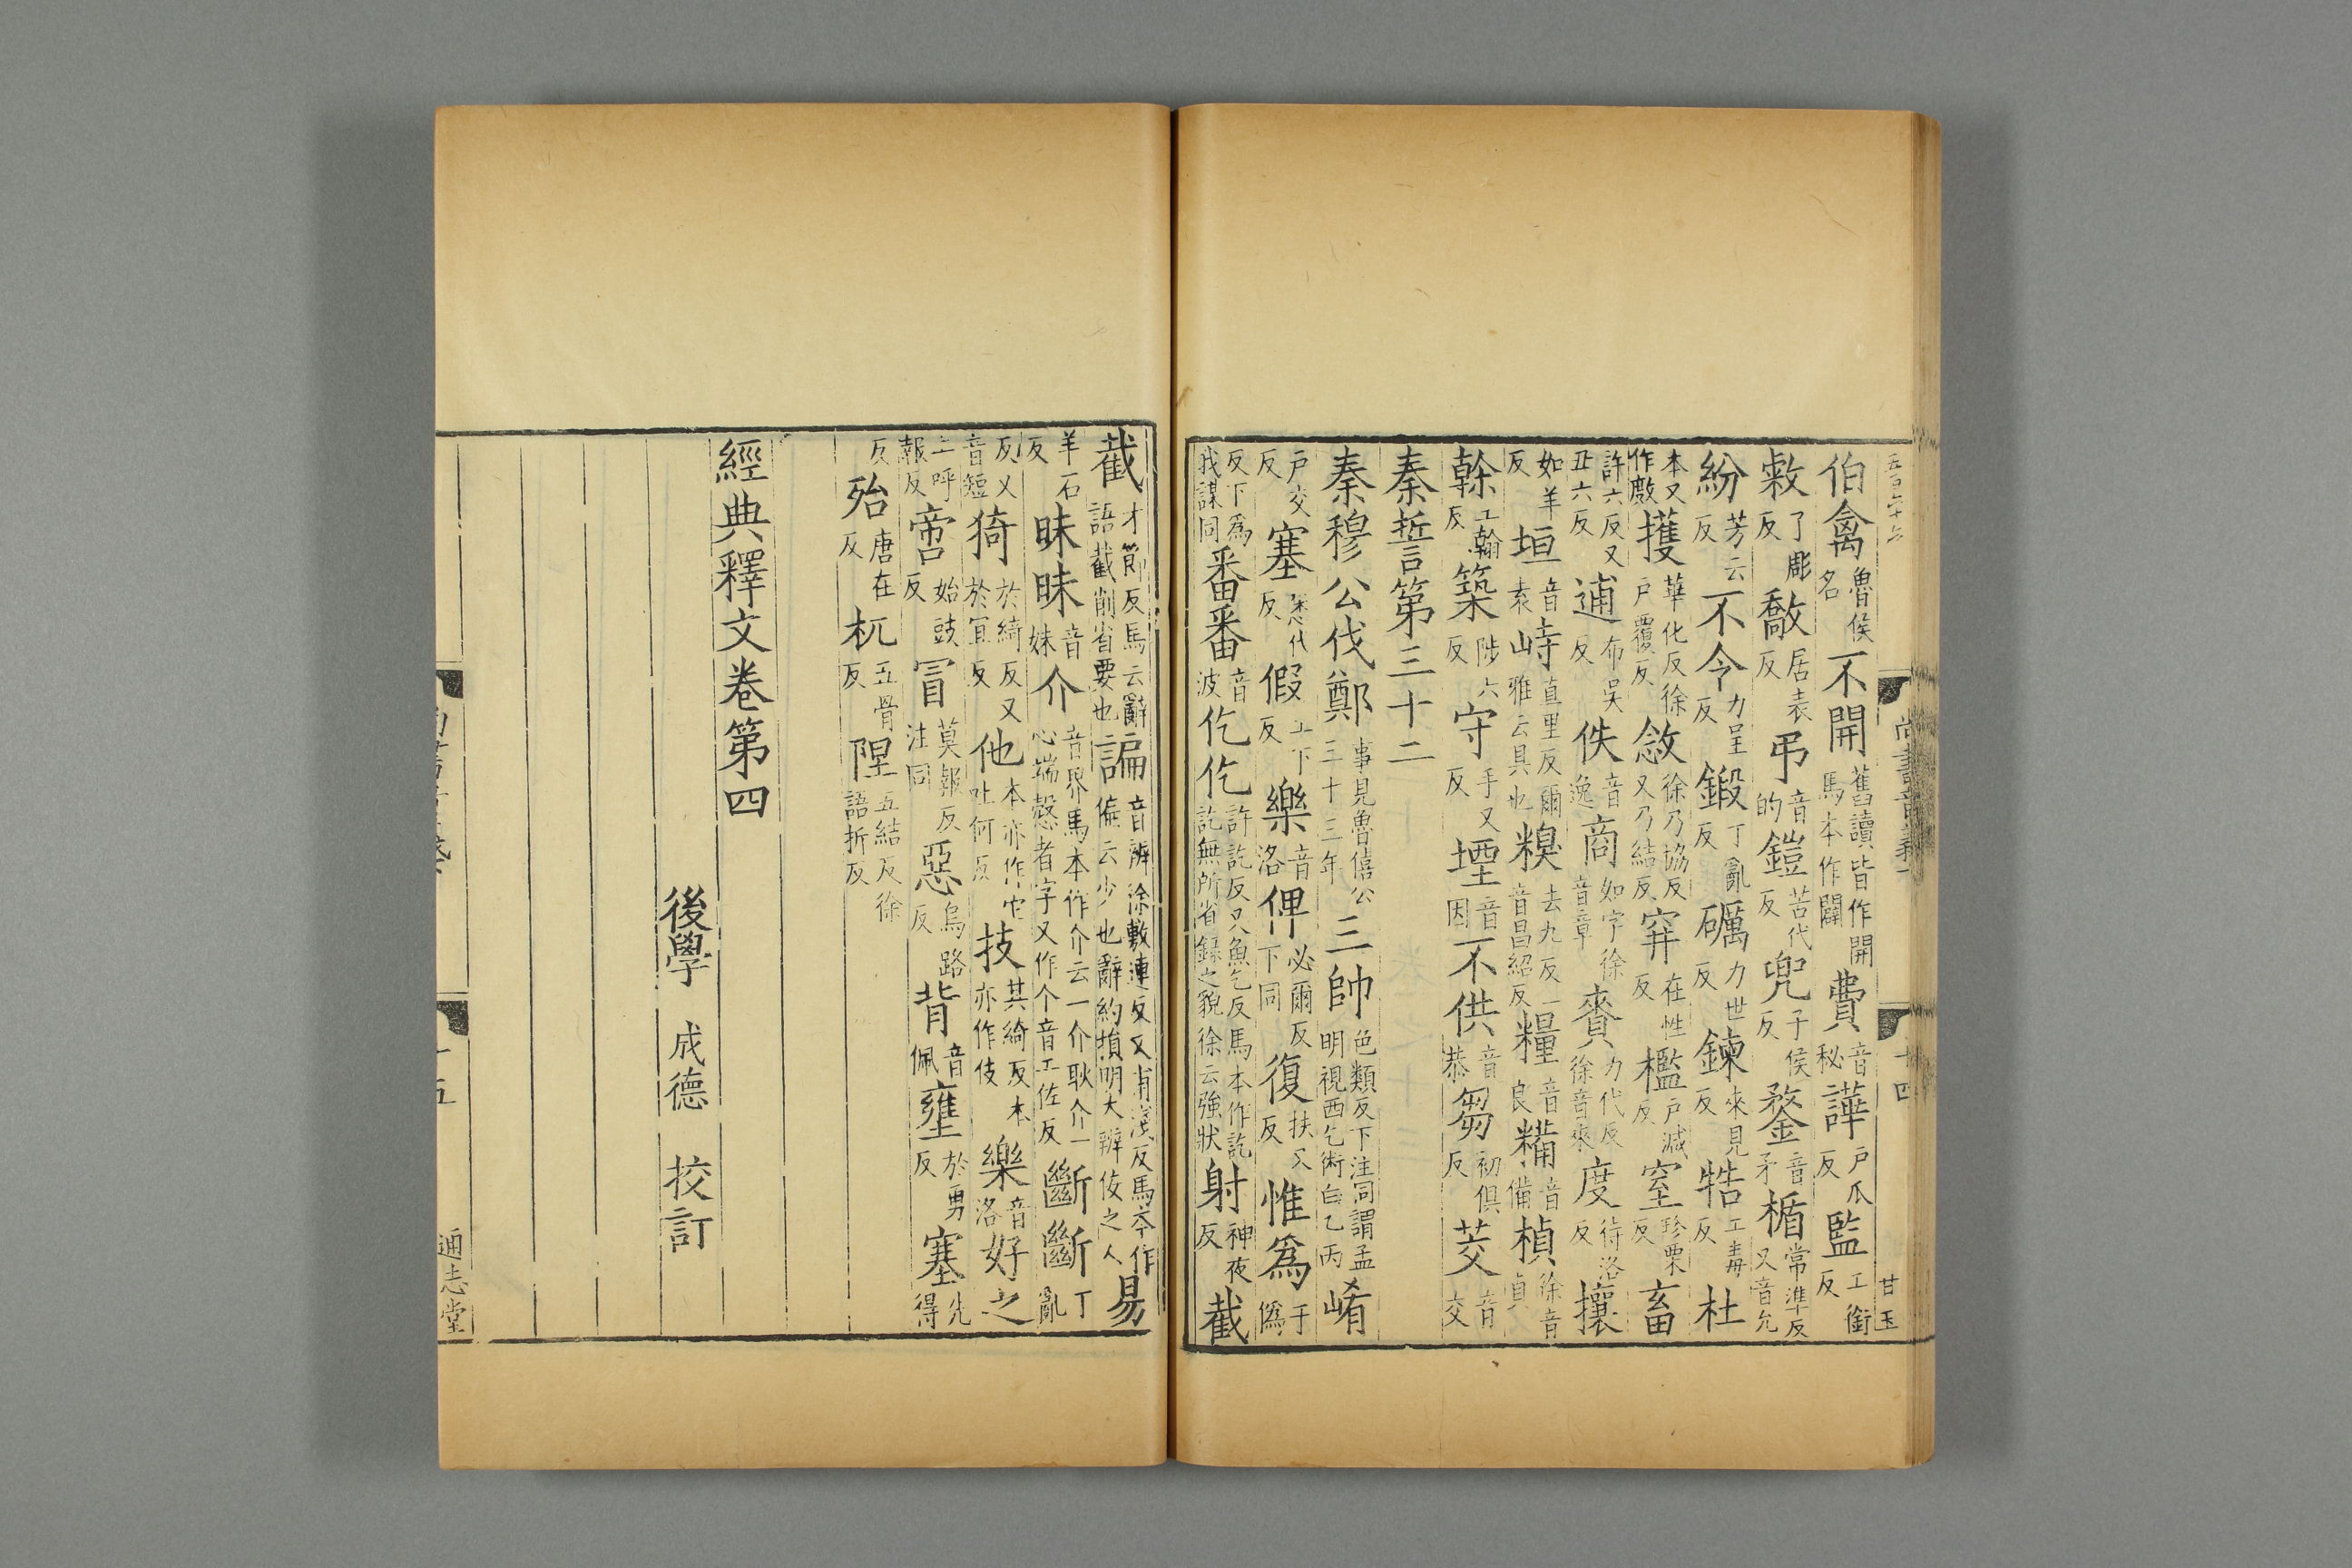 伯禽魯侯名不開舊讀皆作開馬本作闢費音秘譁戶瓜反監工銜反
敹了彫反敿居表反弔音的鎧苦代反兜子侯反鍪音矛楯常準反又音允
紛芳云反不令力呈反鍛丁亂反礪力世反鍊來見反牿工毒反杜
本又作𢾖擭華化反徐戶覆反敜徐乃協反又乃結反穽在性反檻戶減反窒珍栗反畜
許六反又丑六反逋布吳反佚音逸商如字徐音章賚力代反徐音來度待洛反攘
如羊反垣音袁峙直里反爾雅云具也糗去九反一音昌紹反糧音良糒音備楨徐音貞
榦工翰反築陟六反守手又反堙音因不供音恭芻初俱反茭音交
秦誓第三十二
秦穆公伐鄭事見魯僖公三十三年三帥色類反下注同謂孟明視西乞術白乙丙崤
戶交反塞悉代反假工下反樂音洛俾必爾反下同復扶又反惟爲于僞
反下爲我謀同番番音波仡仡許訖反又魚乞反馬本作訖訖無所省錄之貌徐云強狀射神夜反截
截才節反馬云辭語截削省要也諞音辨徐敷連反又甫淺反馬本作偏云少也辭約損明大辨佞之人易
羊石反昧昧音妹介音界馬本作介云一介耿介一心端慤者字又作个音工佐反斷斷丁亂
反又音短猗於綺反又於宜反他本亦作它吐何反技其綺反本亦作伎樂音洛好之
上呼報反啻始豉反冒莫報反注同惡烏路反背音佩壅於勇反塞先得
反殆唐在反杌五骨反隉五結反徐語折反
經典釋文卷第四
後學 成德 挍訂
尚書音義下
十四
甘玉
十五
通志堂